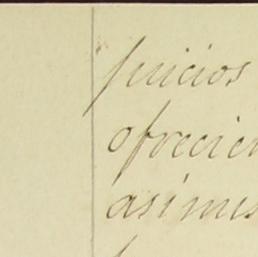 juicios
ofrecien
asimis